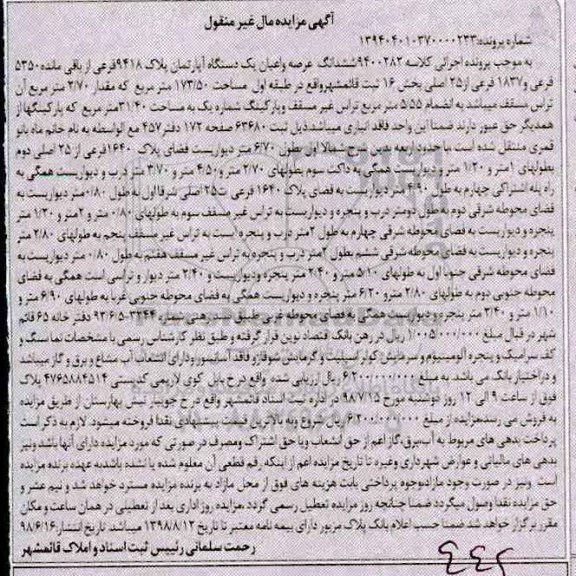 آگهی مزایده مال غیر منقول
شماره پرونده:۱۳۹۴۰۴۰۱۰۳۷۰۰۰۰۲۳۳
به موجب پرونده اجرائی کلاسه ۹۴۰۰۲۸۲ ششدانگ عرصه واعیان یک دستگاه آپارتمان پلاک ۹۴۱۸فرعی از باقی مانده ۵۳۵۰
فرعی و۱۸۳۷ فرعی از۲۵ اصلی بخش ۱۶ ثبت قائمشهر واقع در طبقه اول مساحت ۱۷۳/۵۰ متر مربع که مقدار ۲/۷۰ متر مربع آن
تراس مسقف میباشد به انضمام ۵/۵۵ متر مربع تراس غیر مسقف وپارکینگ شماره یک به مساحت ۳۱/۴۰متر مربع که پارکینگها از
همدیگر حق عبور دارند ضمنا این واحد فاقد انباری میباشد ذیل ثبت ۶۳۶۸۰ صفحه ۱۷۲ دفتر۴۵۷ مع الواسطه به نام خانم ماه بانو
قمری منتقل شده است با حدود اربعه بدین شرح شمالا اول بطول ۶/۷۰ متر دیواریست فضای پلاک ۱۶۴۰فرعی از ۲۵ اصلی دوم
بطولهای ۱متر و ۱/۲۰ متر و دیواریست همگی به داکت سوم بطولهای ۲/۷۰ متر و۴/۵۰ متر و ۳/۷۰ متر درب و دیواریست همگی به
راه پله اشتراکی چهارم به طول ۴/۹۰ متر دیواریست به فضای پلاک ۱۶۴۰ فرعی ت۲۵ اصلی شرقا اول به طول ۰/۸۰متر دیواریست به
فضای محوطه شرقی دوم به طول دومتر درب و پنجره و دیواریست به تراس غیر مسقف سوم به طولهای ۰/۸۰ متر و ۲متر و ۱/۲۰ متر
پنجره و دیواریست به فضای محوطه شرقی چهارم به طول ۲متر درب و پنجره است به تراس غیر مسقف پنجم به طولهای ۲/۸۰ متر
پنجره و دیواریست به فضای محوطه شرقی ششم بطول ۲متر درب و پنجره به تراس غیر مسقف هفتم به طول ۰/۸۰ متر دیواریست به
فضای محوطه شرقی جنوبا اول به طولهای ۵/۱۰ متر و ۲/۴۰ متر پنجره ودیواریست و ۲/۴۰ متر دیوار و تراسی است همگی به فضای
محوطه جنوبی دوم به طولهای ۲/۸۰ مترو ۶/۲۰ متر پنجره و دیواریست همگی به فضای محوطه جنوبی غربا به طولهای ۶/۹۰ متر و
۱/۱۰ متر و ۲/۴۰ متر پنجره و دیواریست همگی به فضای محوطه غربی طبق سند رهنی شماره ۳۲۴۴-۹۳/۶/۵ دفتر خانه ۶۵ قائم
شهر در قبال مبلغ ۱/۰۰۵/۰۰۰/۰۰۰ ریال در رهن بانک اقتصاد نوین قرار گرفته و طبق نظر کارشناس رسمی با مشخصات نما سنگ و
کف سرامیک و پنجره آلومینیوم و سرمایش کولر اسپلیت و گرمایش شوفاژ و فاقد آسانسور ودارای انشعاب آب مشاع و برق و گاز میباشد
و دراختیار بانک می باشد. به مبلغ ۶/۲۰۰/۰۰۰/۰۰۰ ریال ارزیابی شده واقع درخ بابل کوی لاریمی کدپستی ۴۷۶۵۸۸۴۵۱۴ پلاک
فوق از ساعت ۹ الی ۱۲ روز دوشنبه مورخ ۹۸/۷/۱۵ در اداره ثبت اسناد قائمشهر واقع در خ جویبار نبش بهارستان از طریق مزایده
به فروش می رسد مزایده از مبلغ ۶/۲۰۰/۰۰۰/۰۰۰ریال شروع وبه بالاترین قیمت پیشنهادی نقدا فروخته میشود. لازم به ذکر است
پرداخت بدهی های مربوط به آب،برق،گاز اعم از حق انشعاب ویا حق اشتراک ومصرف در صورتی که مورد مزایده دارای آنها باشد ونیز
بدهی های مالیاتی و عوارض شهرداری وغیره تا تاریخ مزایده اعم از اینکه رقم قطعی آن معلوم شده یا نشده باشد به عهده برنده مزایده
است ونیز در صورت وجود مازاد،وجوه پرداختی بابت هزینه های فوق از محل مازاد به برنده مزایده مسترد خواهد شد و نیم عشر و
حق مزایده نقدا وصول میگردد ضمنا چنانچه روز مزایده تعطیل رسمی گردد،مزایده روز اداری بعد از تعطیلی در همان ساعت و مکان
مقرر برگزار خواهد شد ضمنا حسب اعلام بانک پلاک مزبور دارای بیمه نامه معتبر تا تاریخ ۱۳۹۸/۸/۱۲ میباشد. تاریخ انتشار:۹۸/۶/۱۶
رحمت سلمانی رئیس ثبت اسناد و املاک قائمشهر